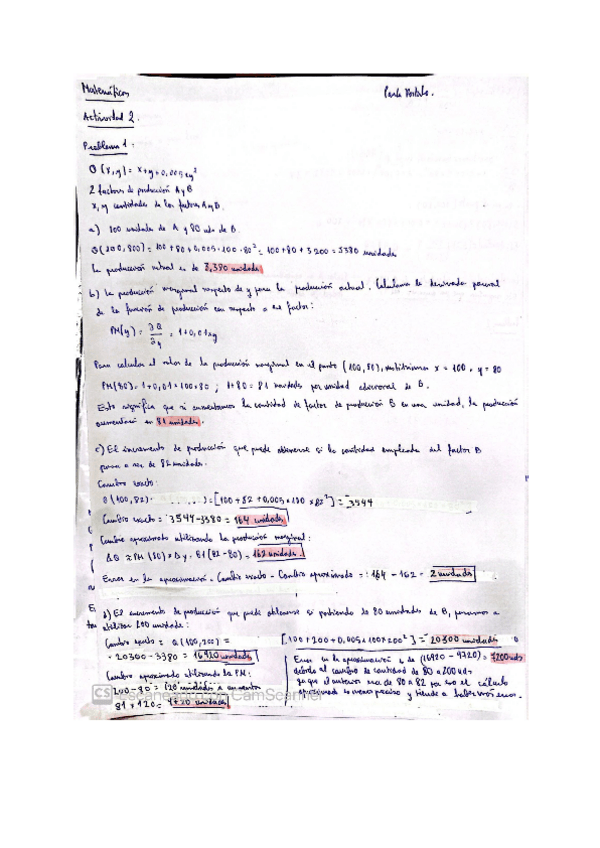 Matemáticas
Actividad 2.
Problema 1:
Q(x,y) = x+y+0,005xy²
2 factores de producción A y B
x, y cantidades de los factores A y B.
a) 100 unidades de A y 80 uds de B.
Q(100,800) = 100+80+0,005·100·80² = 100+80+3200 = 3380 unidades
La producción actual es de 3,380 unidades
b) La producción marginal respecto de y para la producción actual. Calculamos la derivada parcial
de la función de producción con respecto a ese factor:
PM(y) = ∂Q/∂y = 1+0,01xy
Para calcular el valor de la producción marginal en el punto (100,80), sustituimos x = 100 e y = 80
PM(80) = 1+0,01×100×80 ; 1+80 = 81 unidades por unidad adicional de B.
Esto significa que si aumentamos la cantidad de factor de producción B en una unidad, la producción
aumentará en 81 unidades.
c) El incremento de producción que puede obtenerse si la cantidad empleada del factor B
pasa a ser de 82 unidades.
Cambio exacto:
Q(100,82) = [100+82+0,005×100×82²] = 3544
Cambio exacto = 3544-3380 = 164 unidades
Cambio aproximado utilizando la producción marginal:
ΔQ ≈ PM (80) × Δy = 81 (82-80) = 162 unidades.
Error en la aproximación = Cambio exacto - Cambio aproximado = 164 - 162 = 2 unidades
d) El incremento de producción que puede obtenerse si partiendo de 80 unidades de B, pasamos a
utilizar 200 unidades:
Cambio exacto = Q(100,200) = [100+200+0,005×100×200²] = 20300 unidades
= 20300-3380 = 16920 unidades
Cambio aproximado utilizando la PM:
200-80 = 120 unidades
81 × 120 = 4720 unidades
Error en la aproximación es de (16920 - 4720) = 7200 uds
debido al cambio de cantidad de 80 a 200 uds
ya que el anterior era de 80 a 82 por eso el cálculo
aproximado es menos preciso y tiende a haber más error.
CS Escaneado con CamScanner